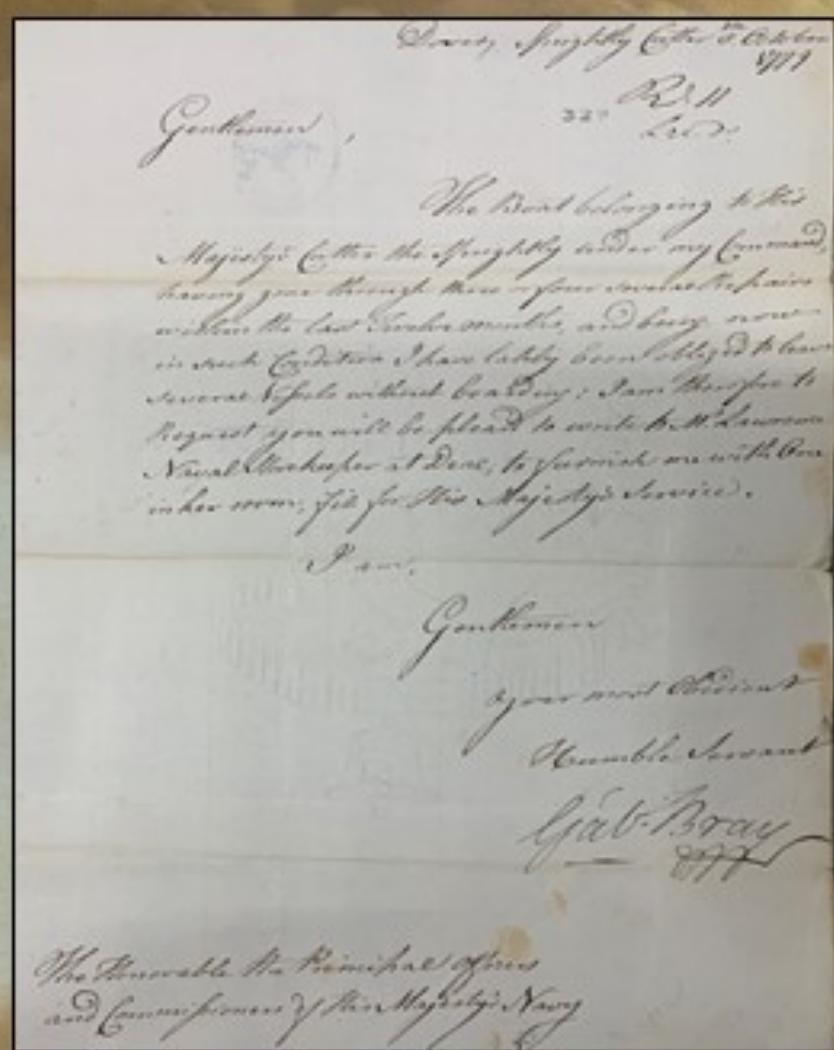 Dover, Sprightly Cutter 8th October
1779
Rd 11
327
Gentlemen,
The Boat belonging to His
Majesty's Cutter the Sprightly under my Command,
having gone through three or four several Repairs
within the last Twelve months, and being now
in such Condition I have lately been obliged to leave
several Vessels without boarding; I am therefore to
Request you will be pleas'd to write to Mr. Lawrence
Naval Storekeeper at Deal, to furnish me with One
in her room, fit for His Majesty's Service.
I am,
Gentlemen
Your most Obedient
Humble Servant
Gab. Bray
The Honorable the Principal Officers
and Commissioners of His Majesty's Navy